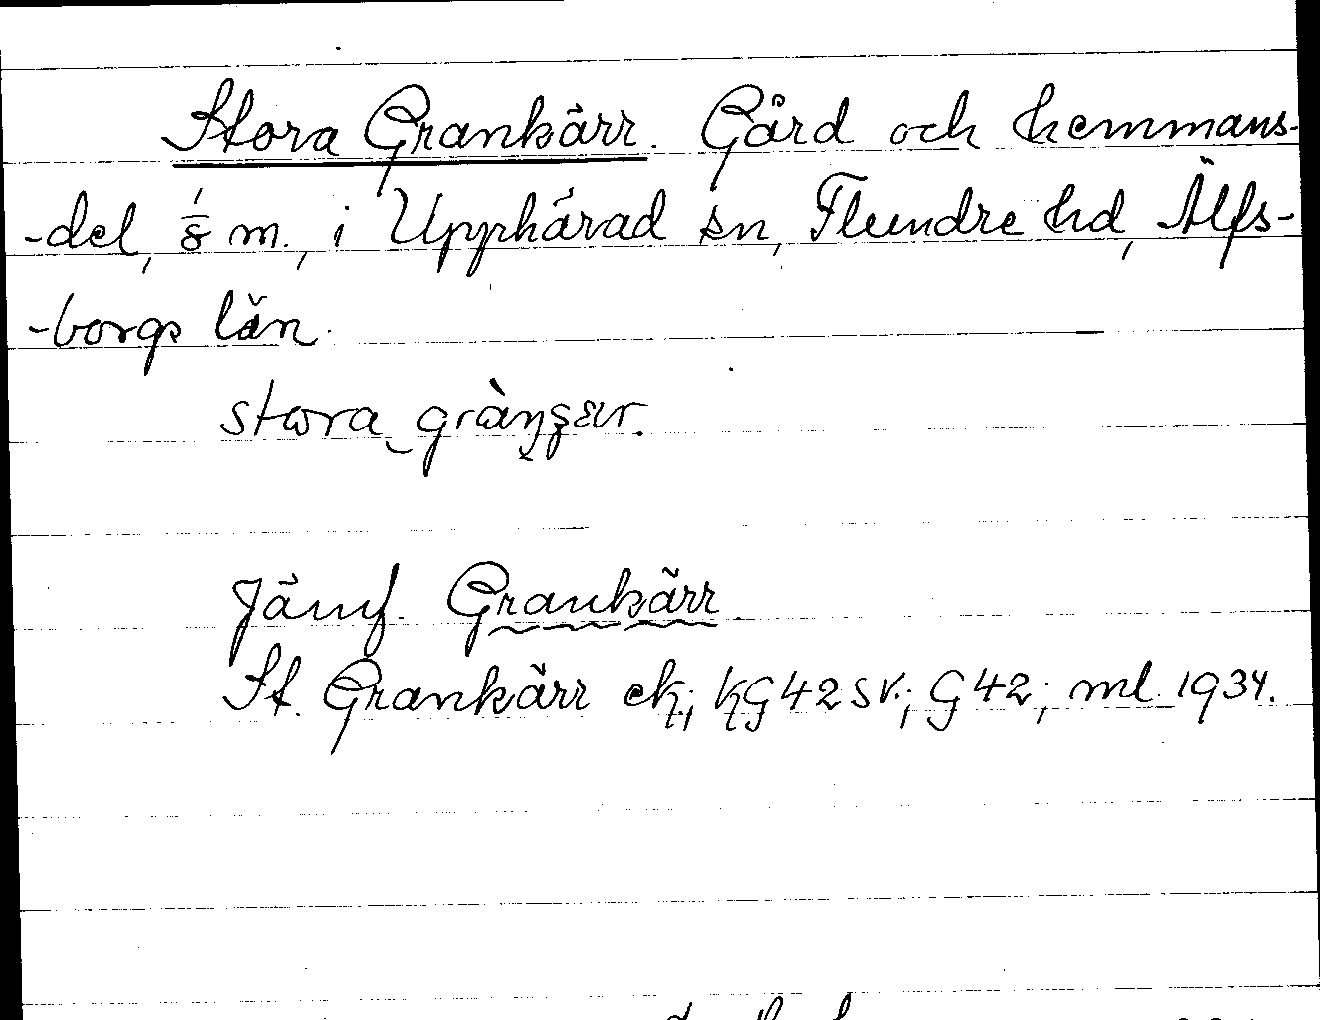 Stora Grankärr. Gård och hemmans-
-del, 1/8 m., i Upphärad sn, Flundre hd, Älfs-
-borgs län.
stora grànsar.
Jämf. Grankärr
St. Grankärr ek; kG42SV.; G42; ml. 1934.